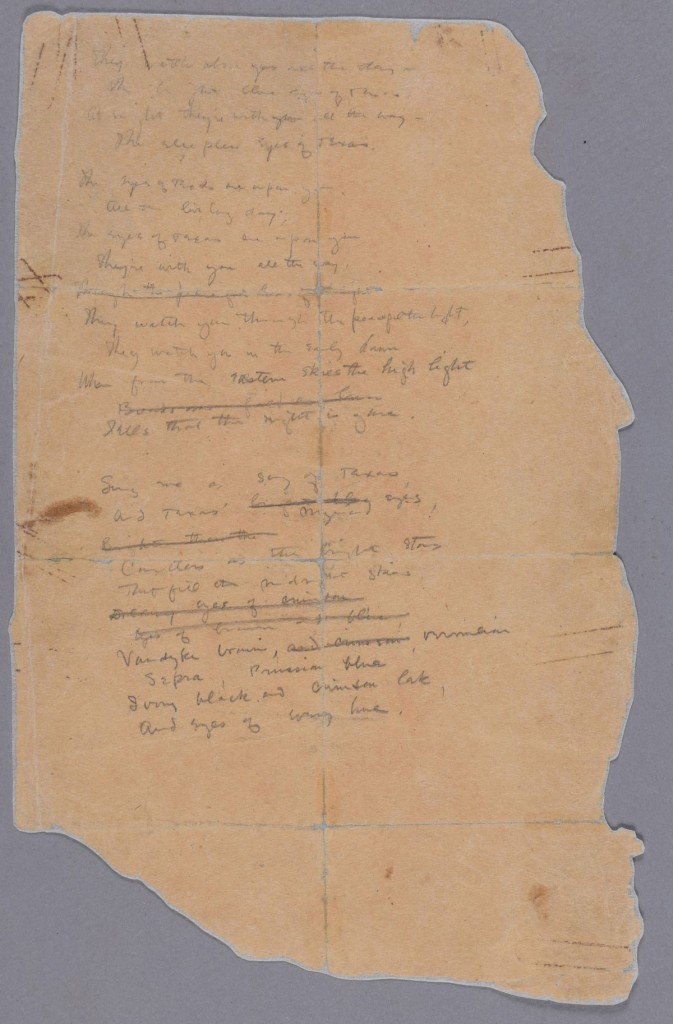 They watch above you all the day —
The bright blue eyes of Texas
At night they're with you all the way —
The sleepless eyes of Texas.
The eyes of Texas are upon you
All the live long day;
The eyes of Texas are upon you
They're with you all the way.
They watch you through the peaceful night,
They watch you in the early dawn
When from the eastern skies the high light
Tells that the night is gone.
Sing me a song of Texas,
And Texas' myriad eyes,
Countless as the bright stars
That fill the midnight skies
Eyes of brown and blue
Vandyke brown, and crimson, vermilion
Sepia, Prussian blue
Ivory black and crimson lake,
And eyes of every hue.